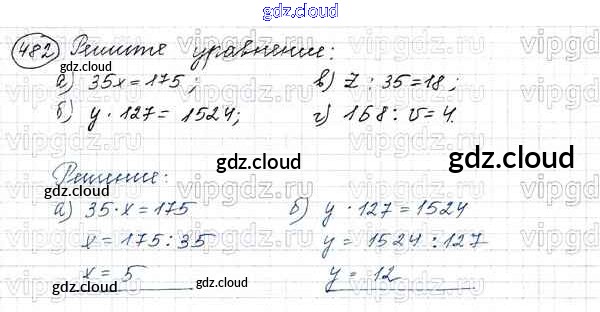 gdz.cloud
482 Решите уравнение:
а) 35x = 175; в) z : 35 = 18;
б) y · 127 = 1524; г) 168 : v = 4.
gdz.cloud gdz.cloud
Решение:
gdz.cloud gdz.cloud
а) 35 · x = 175 б) y · 127 = 1524
x = 175 : 35 y = 1524 : 127
x = 5 y = 12
gdz.cloud gdz.cloud
vipgdz.ru